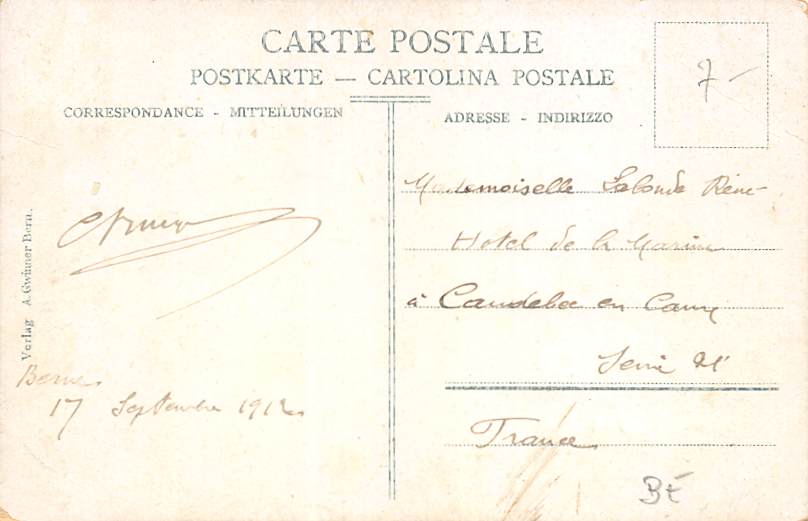 CARTE POSTALE
POSTKARTE — CARTOLINA POSTALE
CORRESPONDANCE - MITTEILUNGEN
ADRESSE - INDIRIZZO
7-
Mademoiselle René
Hotel de la Marine
à Caudebec en Caux
Seine
France
Berne
17 Septembre
Verlag A. Gwinner Bern.
BE